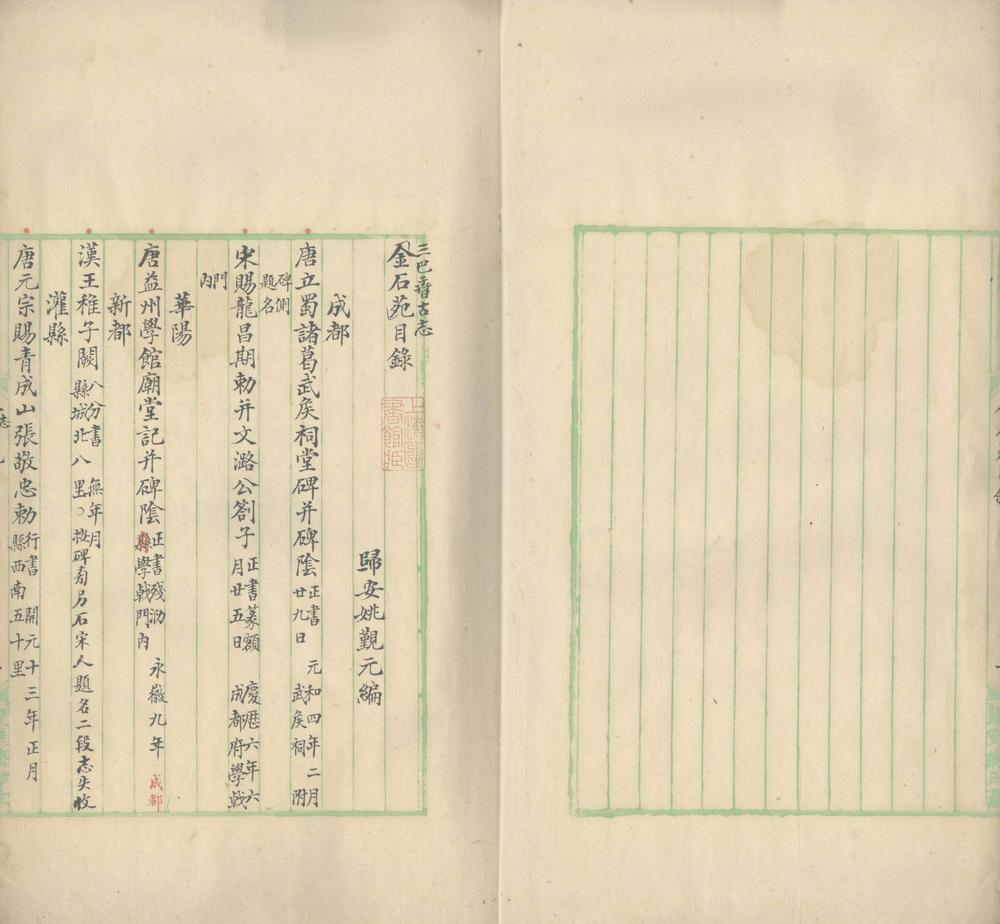 三巴耆古志
金石苑目錄
歸安姚覲元編
成都
唐立蜀諸葛武侯祠堂碑并碑陰 正書 元和四年二月廿九日 武侯祠 附
碑側題名
宋賜龍昌期勅并文潞公劄子 正書篆額 慶歷六年六月廿五日 成都府學戟
門內
華陽
唐益州學館廟堂記并碑陰 正書殘泐 永徽九年 縣學戟門內 成都
新都
漢王稚子闕 八分書 無年月 縣城北八里○按碑有另石宋人題名二段志失收
灌縣
唐元宗賜青成山張敬忠勅 行書 開元十三年正月 縣西南五十里